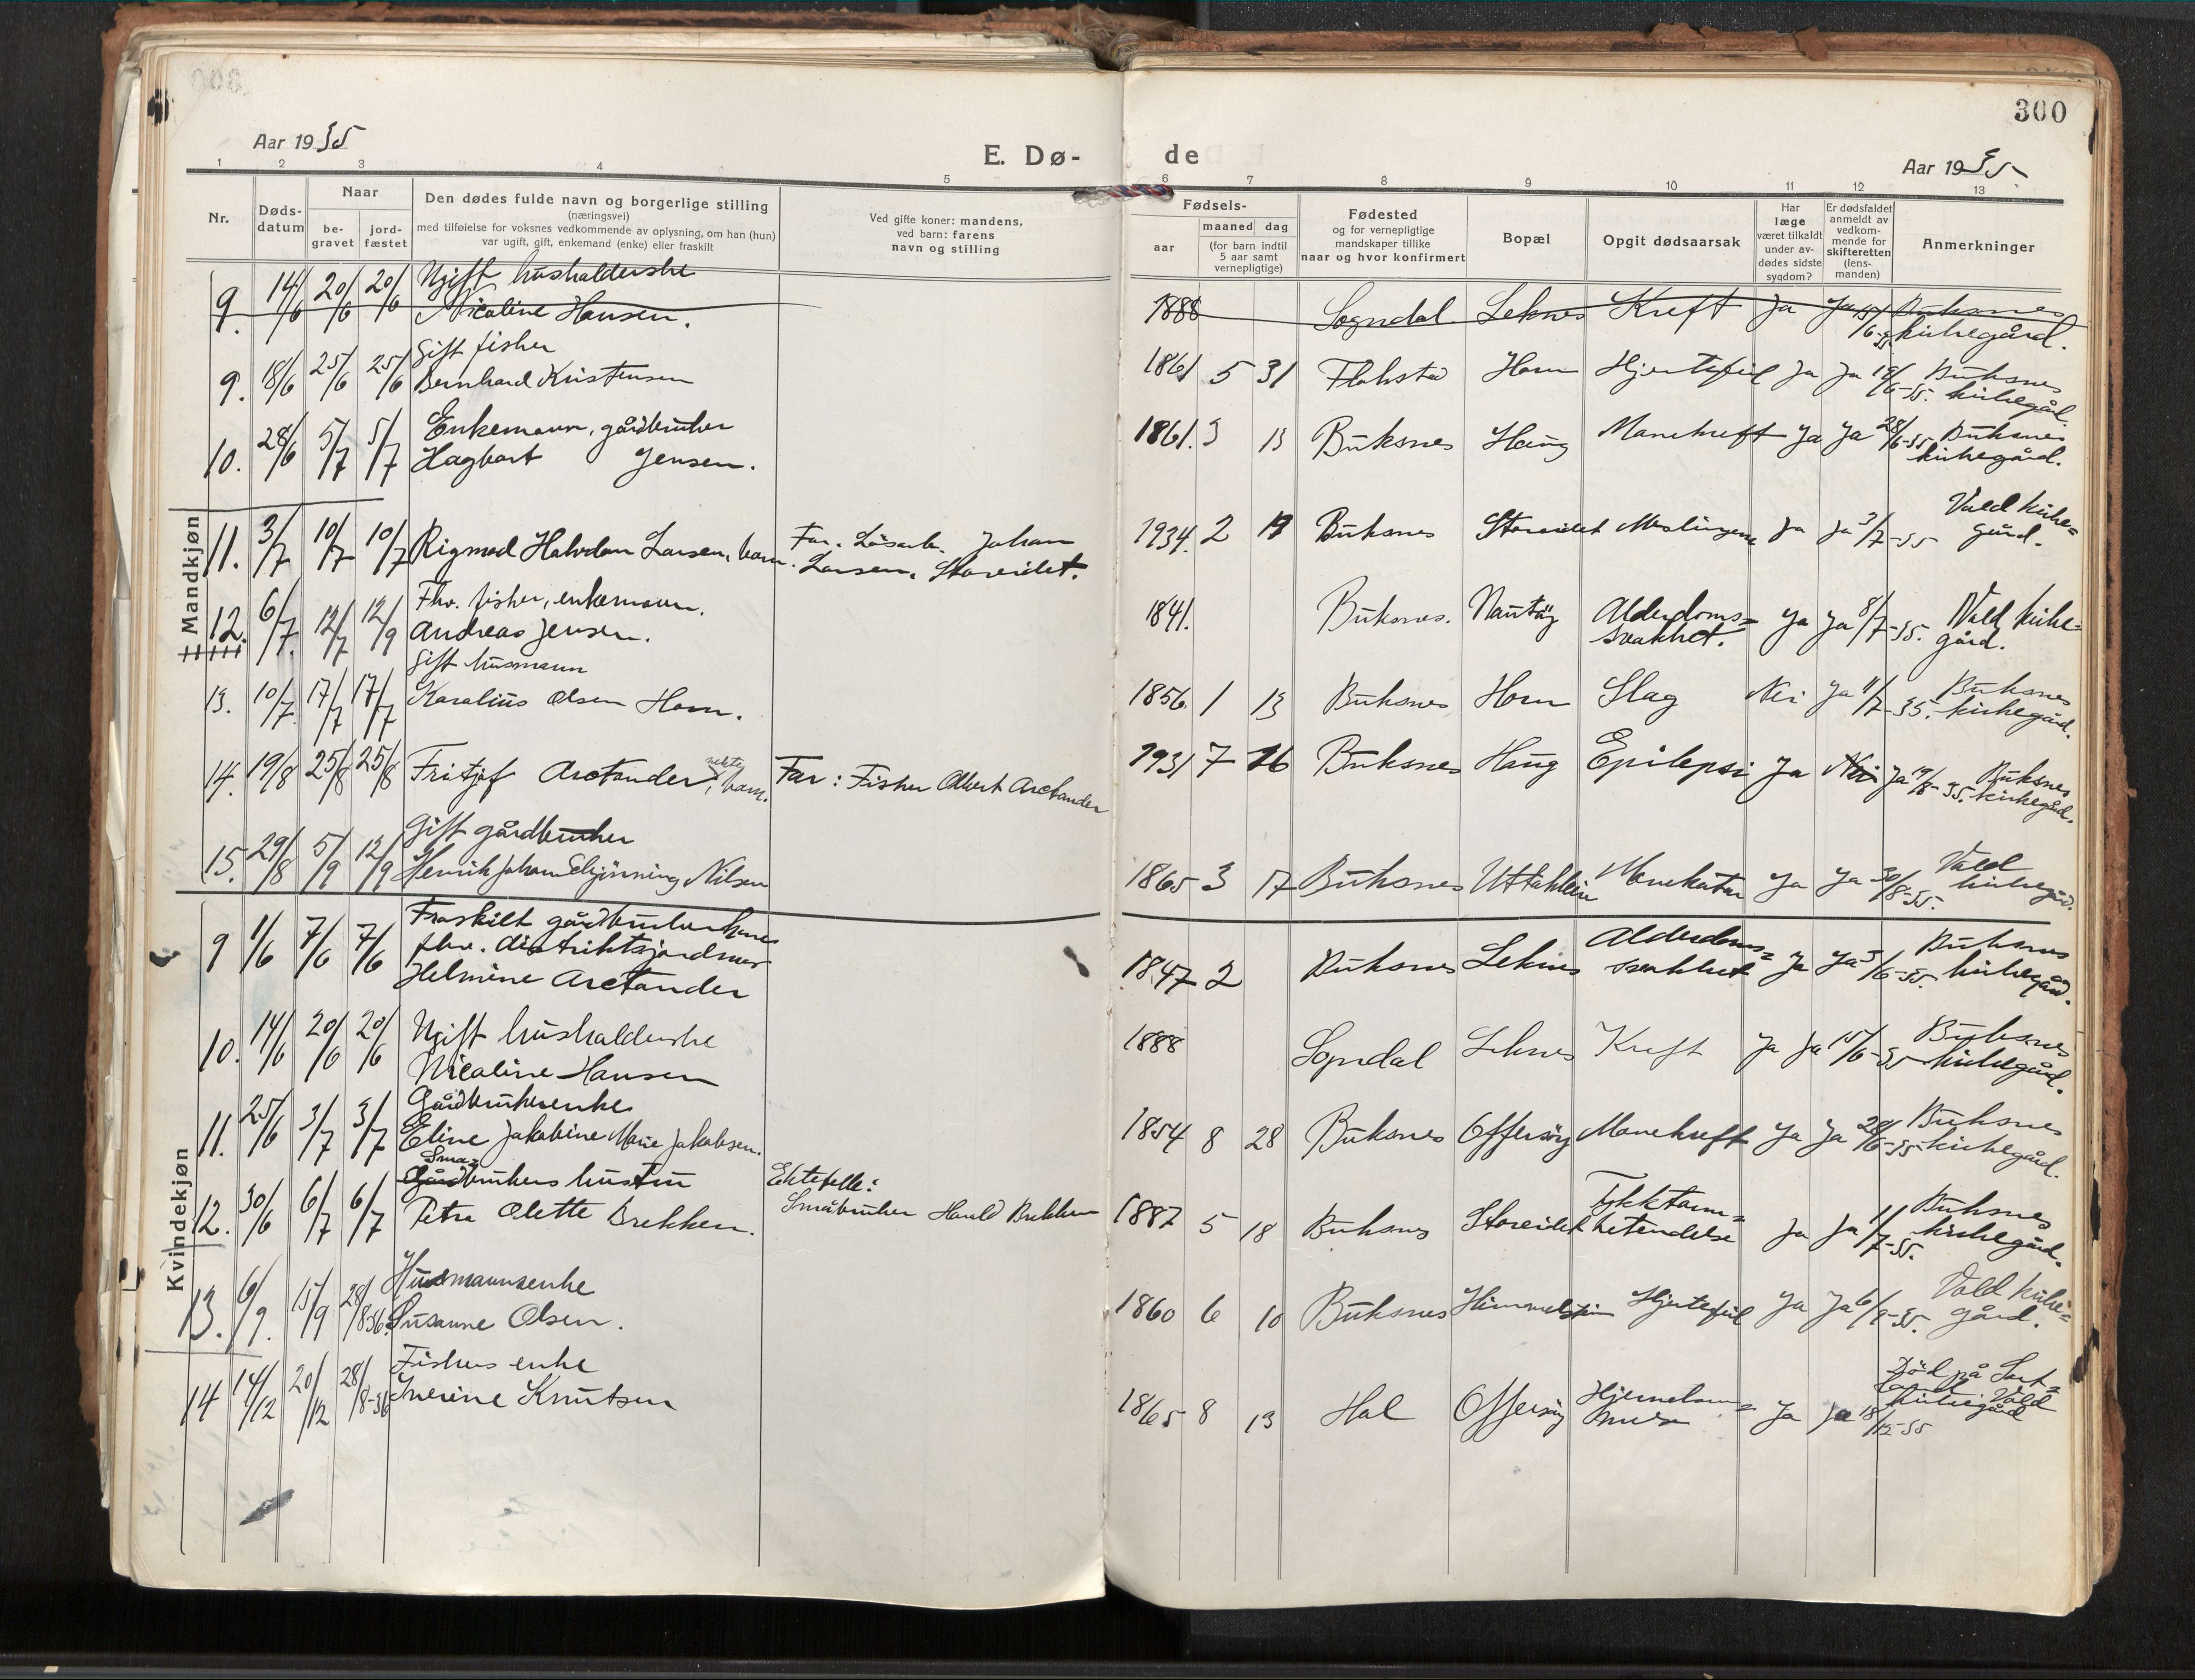 300
Aar 1935
E. Dø-
de
Aar 1935.
1 2 3 4 5 6 7 8 9 10 11 12 13
Nr.
Døds-
datum
Naar
be-
gravet
jord-
fæstet
Den dødes fulde navn og borgerlige stilling
(næringsvei)
med tilføielse for voksnes vedkommende av oplysning, om han (hun)
var ugift, gift, enkemand (enke) eller fraskilt
Ved gifte koner: mandens,
ved barn: farens
navn og stilling
Fødsels-
aar
maaned dag
(for barn indtil
5 aar samt
vernepligtige)
Fødested
og for vernepligtige
mandskaper tillike
naar og hvor konfirmert
Bopæl
Opgit dødsaarsak
Har
læge
været tilkaldt
under av-
dødes sidste
sygdom?
Er dødsfaldet
anmeldt av
vedkom-
mende for
skifteretten
(lens-
manden)
Anmerkninger
Mandkjøn
Ugift husholderske
9. 14/6 20/6 20/6 Nicoline Hansen. 1888 Sogndal Leknes Kreft Ja Ja 15/6-35 Buksnes
kirkegård.
Gift fisker
9. 18/6 25/6 25/6 Bernhard Kristensen 1861 5 31 Flakstad Horn Hjertefeil Ja Ja 19/6-35. Buksnes
kirkegård.
Enkemann, gårdbruker
10. 28/6 5/7 5/7 Hagbart Jensen. 1861. 3 13 Buksnes Haug Mavekreft Ja Ja 28/6-35 Buksnes
kirkegård.
11. 3/7 10/7 10/7 Rigmod Halvdan Larsen, barn. Far. Løsarb. Johan
Larsen, Storeidet. 1934. 2 19 Buksnes Storeidet Meslingene Ja Ja 3/7-35 Vald kirke=
gård.
Fhv. fisker, enkemann.
12. 6/7. 12/7 12/9 Andreas Jensen. 1841. Buksnes. Nautøy Alderdoms=
svakhet. Ja Ja 8/7-35. Vald kirke=
gård.
Gift husmann
13. 10/7. 17/7 17/7 Karolius Olsen Horn. 1856. 1 13 Buksnes Horn Slag Nei Ja 11/7-35. Buksnes
kirkegård.
14. 19/8 25/8 25/8 Fritjof Arctander, ekte barn. Far: Fisker Albert Arctander 1931 7 16 Buksnes Haug Epilepsi Ja Nei Ja 19/8-35. Buksnes
kirkegård.
Gift gårdbruker
15. 29/8 5/9 12/9 Henrik Johan Schjønning Nilsen 1865 3 17 Buksnes Uttakleiv Mavekatar Ja Ja 30/8-35. Vald
kirkegård.
Kvindekjøn
Fraskilt gårdbrukerkone
fhv. distriktsjordmor
9 1/6 7/6 7/6 Helmine Arctander 1847 2 Buksnes Leknes Alderdoms=
svakhet Ja Ja 3/6-35. Buksnes
kirkegård.
Ugift husholderske
10. 14/6 20/6 20/6 Nicoline Hansen 1888 Sogndal Leknes Kreft Ja Ja 15/6-35 Buksnes
kirkegård.
Gårdbrukerenke
11. 25/6 3/7 3/7 Eline Jakobine Marie Jakobsen. 1854 8 28 Buksnes Offersøy Mavekreft Ja Ja 28/6-35 Buksnes
kirkegård.
Små=
Gårdbrukers hustru
12. 30/6 6/7 6/7 Petra Olette Brekken. Ektefelle:
Småbruker Harald Brekken 1887 5 18 Buksnes Storeidet Tykktarm=
betendelse Ja Ja 1/7-35. Buksnes
kirkegård.
Husmannsenke
13. 6/9. 15/9 28/8 36. Susanne Olsen. 1860 6 10 Buksnes Himmelstein Hjertefeil Ja Ja 6/9-35. Vald kirke=
gård.
Fiskers enke
14 14/12 20/12 28/8-36 Inerine Knutsen 1865 8 13 Hol Offersøy Ja Ja 18/12-35 Død på
Vald
kirkegård